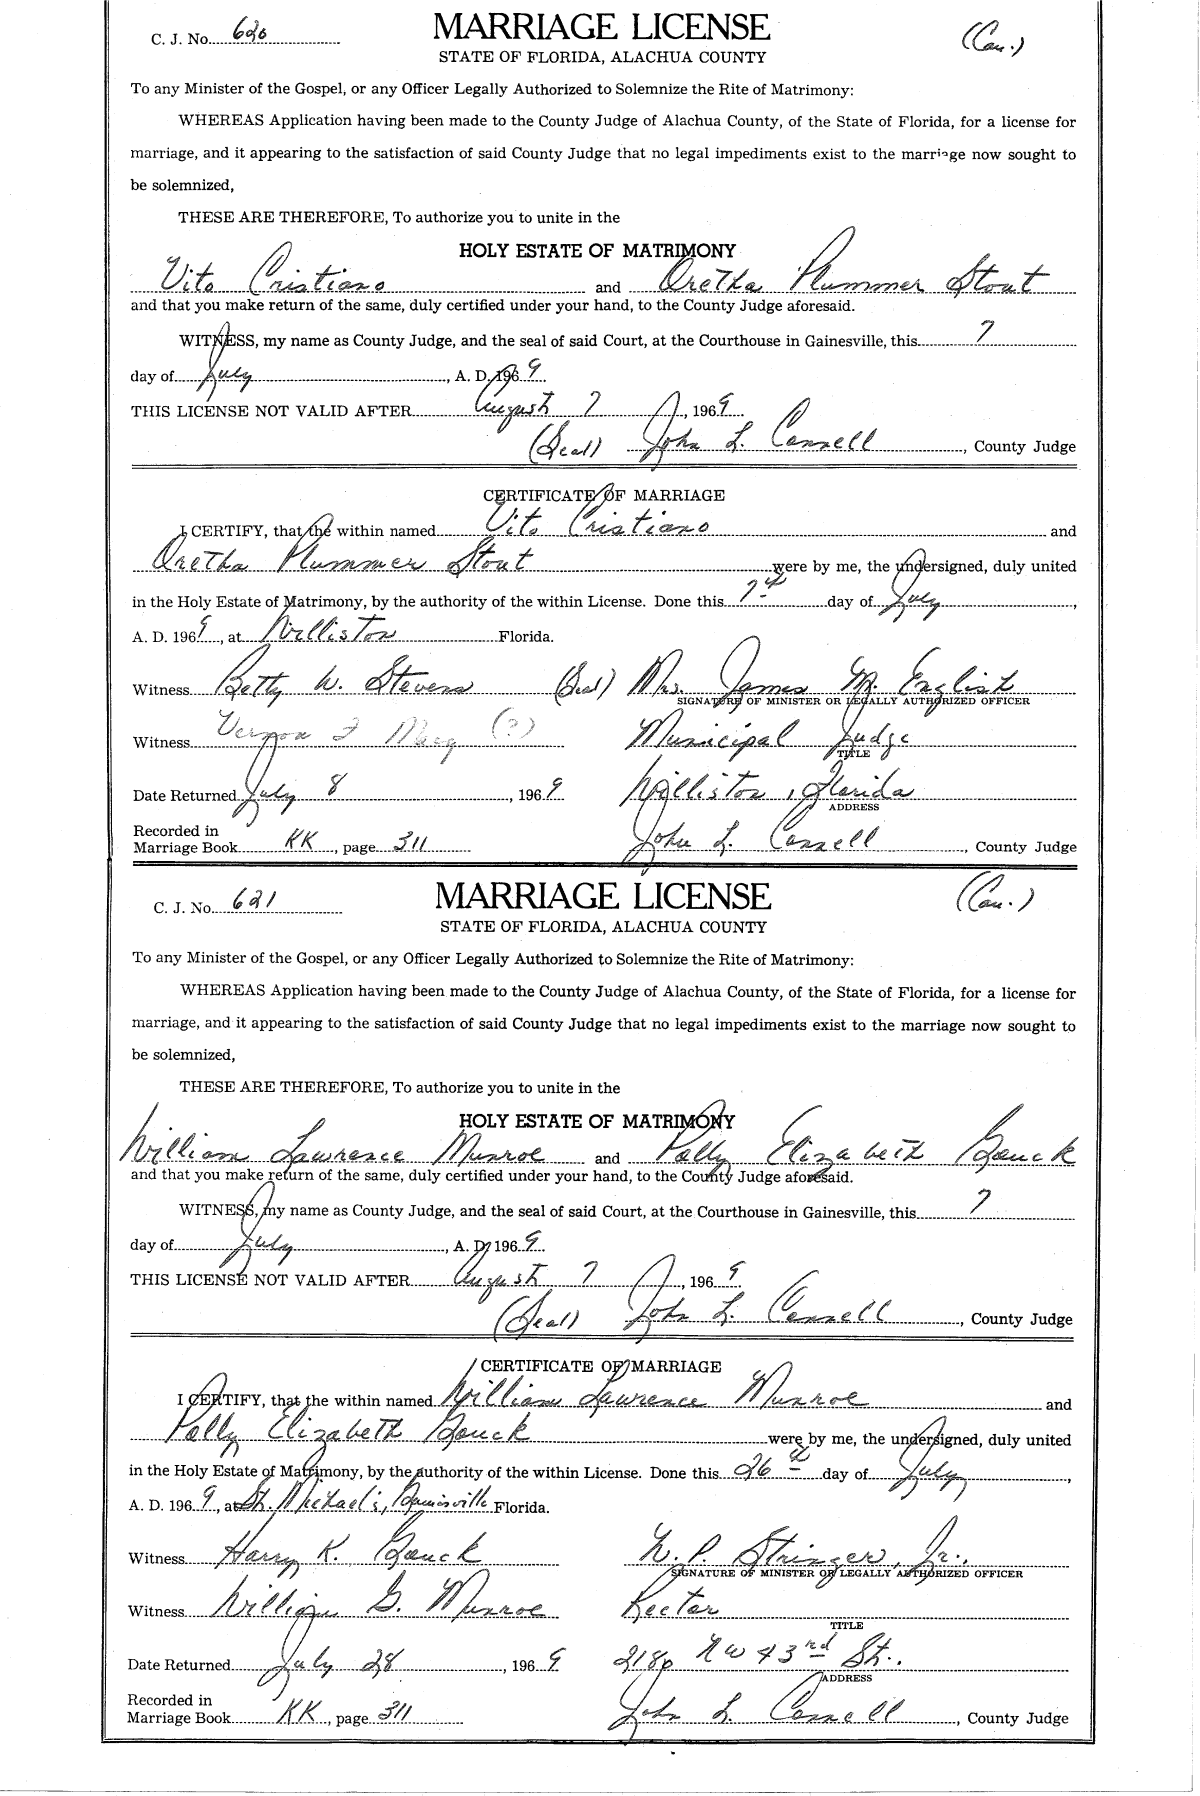 C. J. No. 620
MARRIAGE LICENSE
(Cau.)
STATE OF FLORIDA, ALACHUA COUNTY
To any Minister of the Gospel, or any Officer Legally Authorized to Solemnize the Rite of Matrimony:
WHEREAS Application having been made to the County Judge of Alachua County, of the State of Florida, for a license for
marriage, and it appearing to the satisfaction of said County Judge that no legal impediments exist to the marriage now sought to
be solemnized,
THESE ARE THEREFORE, To authorize you to unite in the
HOLY ESTATE OF MATRIMONY
Vito Cristiano and Oretha Plummer Stout
and that you make return of the same, duly certified under your hand, to the County Judge aforesaid.
WITNESS, my name as County Judge, and the seal of said Court, at the Courthouse in Gainesville, this 7
day of July, A. D. 196 9
THIS LICENSE NOT VALID AFTER August 7, 196 9
(Seal) John L. Connell, County Judge
CERTIFICATE OF MARRIAGE
I CERTIFY, that the within named Vito Cristiano and
Oretha Plummer Stout were by me, the undersigned, duly united
in the Holy Estate of Matrimony, by the authority of the within License. Done this 7th day of July,
A. D. 196 9, at Williston Florida.
Witness Betty W. Stevens (Seal) Mrs. James M. English
SIGNATURE OF MINISTER OR LEGALLY AUTHORIZED OFFICER
Witness Vernon F (?) Municipal Judge
TITLE
Date Returned July 8, 196 9 Williston, Florida
ADDRESS
Recorded in
Marriage Book KK, page 311 John L. Connell, County Judge
C. J. No. 621
MARRIAGE LICENSE
(Cau.)
STATE OF FLORIDA, ALACHUA COUNTY
To any Minister of the Gospel, or any Officer Legally Authorized to Solemnize the Rite of Matrimony:
WHEREAS Application having been made to the County Judge of Alachua County, of the State of Florida, for a license for
marriage, and it appearing to the satisfaction of said County Judge that no legal impediments exist to the marriage now sought to
be solemnized,
THESE ARE THEREFORE, To authorize you to unite in the
HOLY ESTATE OF MATRIMONY
William Lawrence Munroe and Polly Elizabeth Gouck
and that you make return of the same, duly certified under your hand, to the County Judge aforesaid.
WITNESS, my name as County Judge, and the seal of said Court, at the Courthouse in Gainesville, this 7
day of July, A. D. 196 9
THIS LICENSE NOT VALID AFTER August 7, 196 9
(Seal) John L. Connell, County Judge
CERTIFICATE OF MARRIAGE
I CERTIFY, that the within named William Lawrence Munroe and
Polly Elizabeth Gouck were by me, the undersigned, duly united
in the Holy Estate of Matrimony, by the authority of the within License. Done this 26th day of July,
A. D. 196 9, at St. Michael's, Gainesville Florida.
Witness Harry K. Gouck W. P. Stringer, Jr.
SIGNATURE OF MINISTER OR LEGALLY AUTHORIZED OFFICER
Witness William G. Munroe Rector
TITLE
Date Returned July 28, 196 9 NW 43rd St.
ADDRESS
Recorded in
Marriage Book KK, page 311 John L. Connell, County Judge